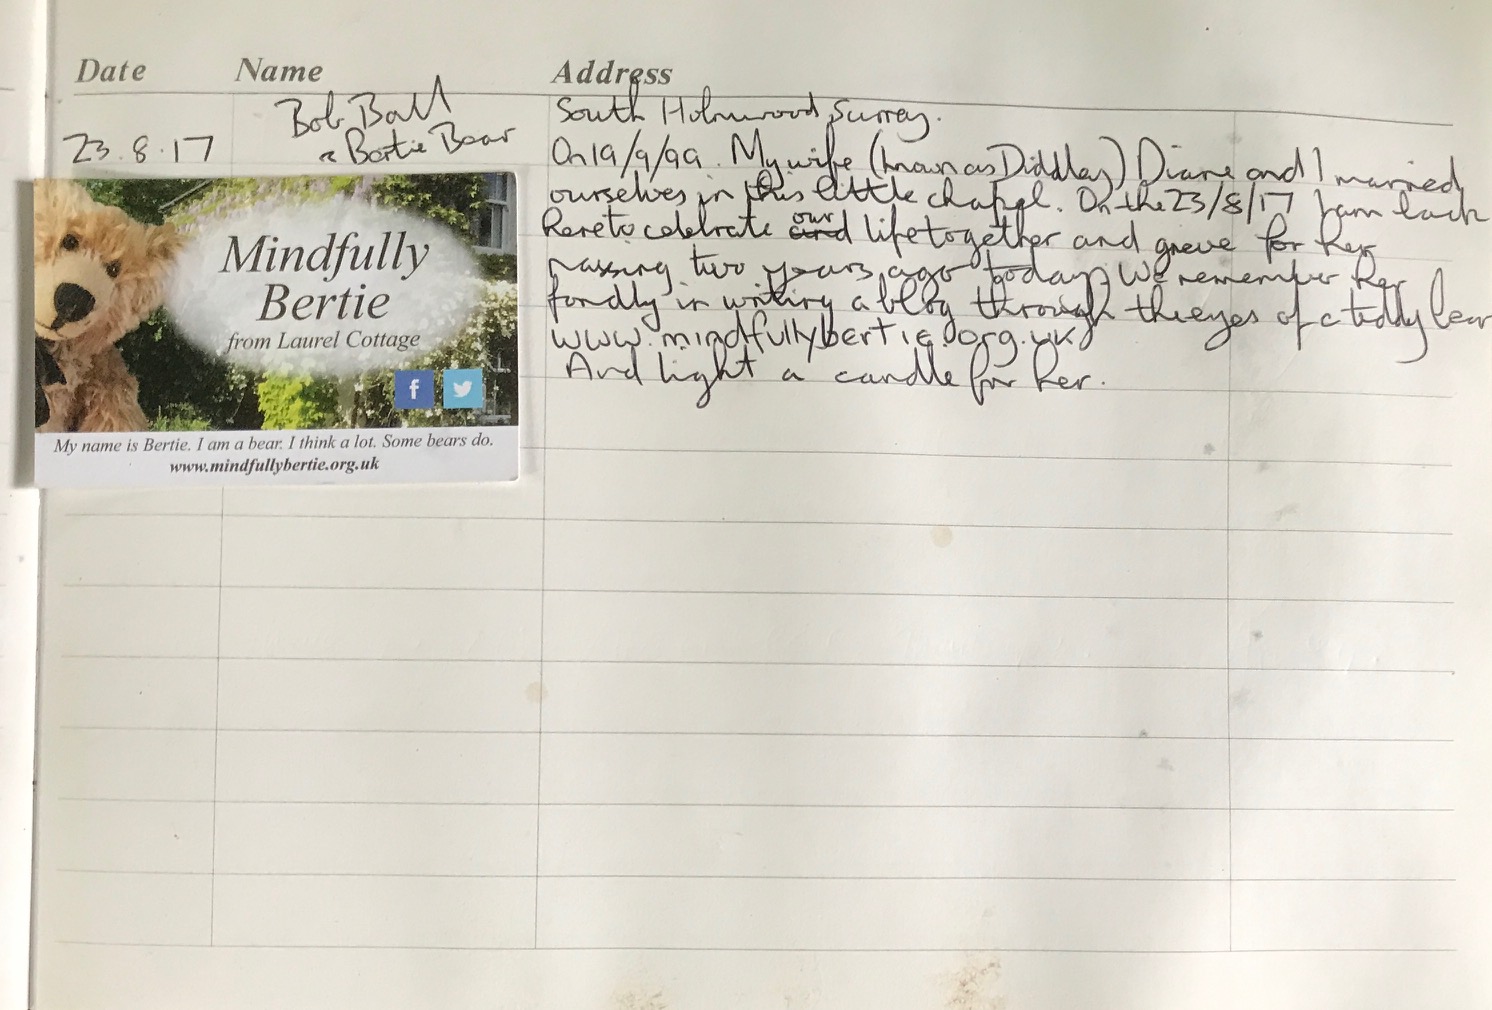 Date Name Address
Bob Ball
South Holmwood, Surrey.
23.8.17
& Bertie Bear
On 19/9/99. My wife (known as Diddley) Diane and I married
ourselves in this little chapel. On the 23/8/17 I am back
here to celebrate our life together and greve for her
passing two years ago today. We remember her
fondly in writing a blog through the eyes of a teddy bear
www.mindfullybertie.org.uk
And light a candle for her.
Mindfully
Bertie
from Laurel Cottage
f
My name is Bertie. I am a bear. I think a lot. Some bears do.
www.mindfullybertie.org.uk